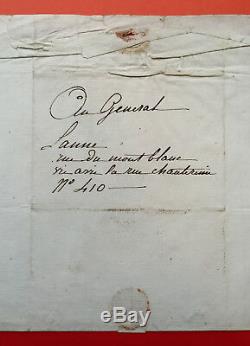 Au General
Lanne
rue du mont blanc
vis avis la rue chantereine
N° 410